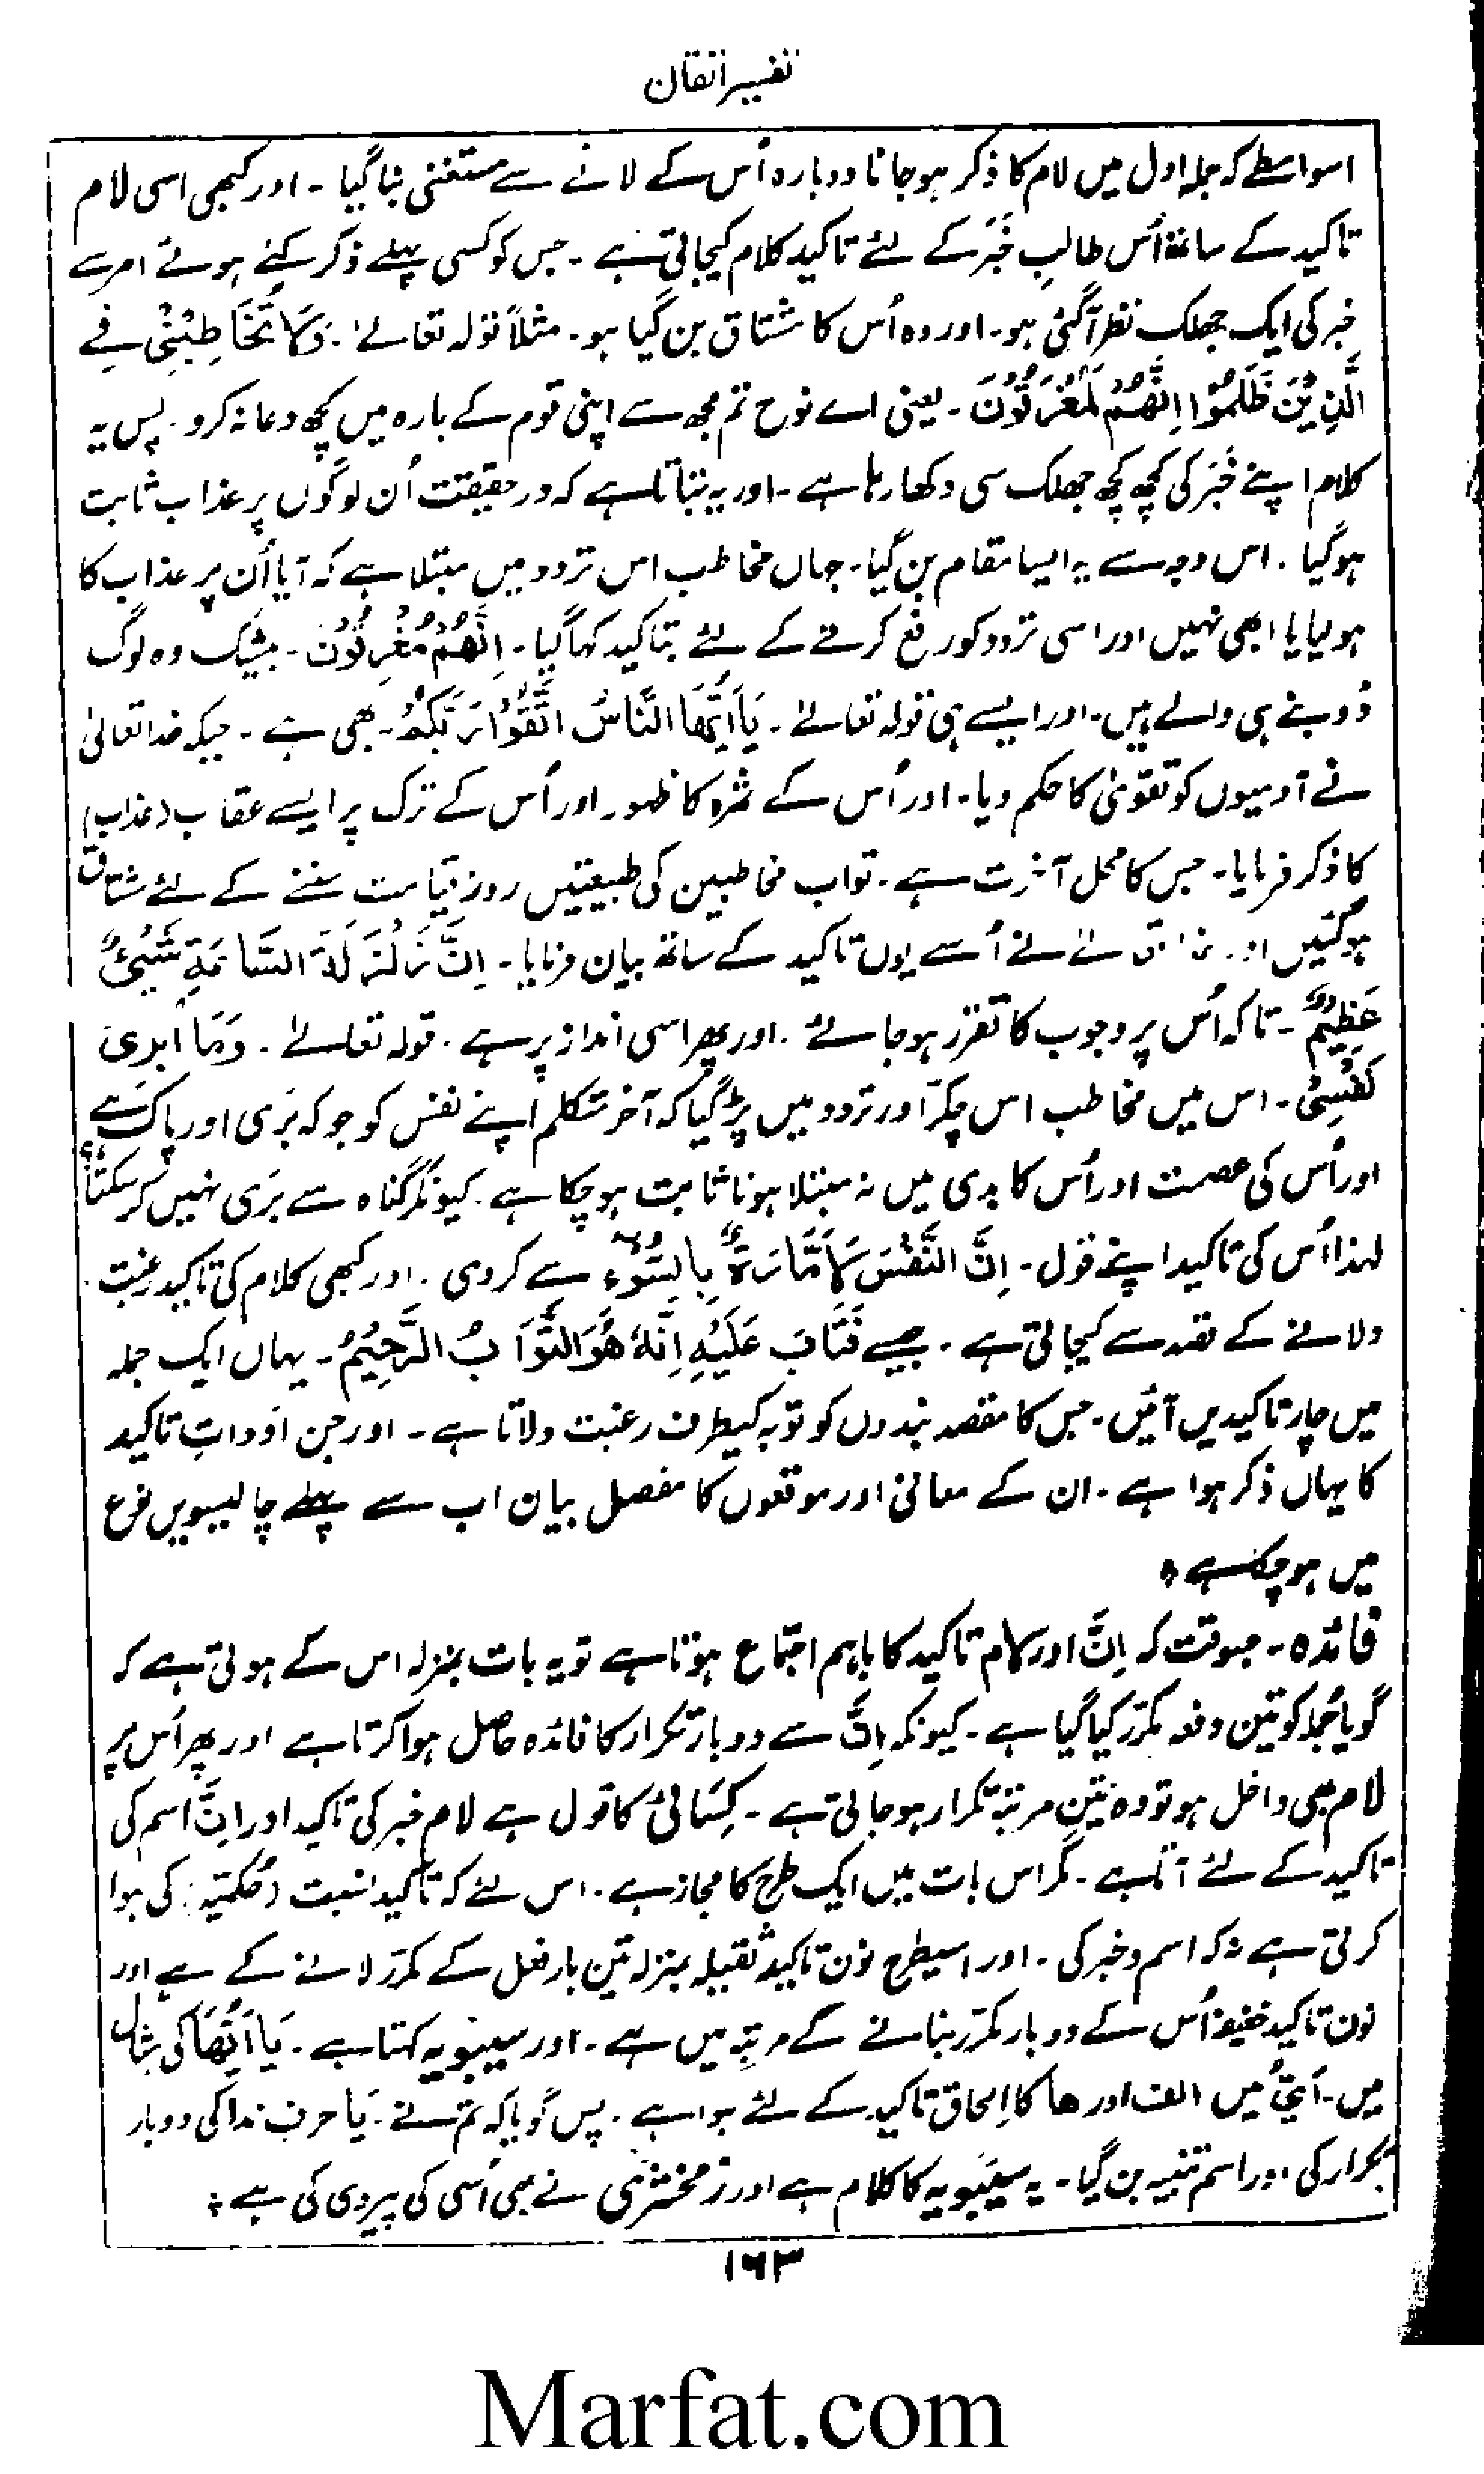 تفسیر اتقان
اسواسطے کہ جملہ اول میں لام کا ذکر ہوجانا دوبارہ اُس کے لانے سے مستغنی بنا گیا ۔ اور کبھی اسی لام
تاکید کے ساتھ اُس طالبِ خَبَر کے لئے تاکید کلام کیجاتی ہے ۔ جس کو کسی پہلے ذکر کئے ہوئے امر سے
خبر کی ایک جھلک نظر آگئی ہو ۔ اور وہ اُس کا مشتاق بن گیا ہو ۔ مثلاً قولہ تعالےٰ ۔ وَلَا تُخَاطِبْنِیْ فِے
الَّذِیْنَ ظَلَمُوْا اِنَّهُمْ لَمُغْرَقُوْنَ ۔ یعنی اے نوح تم مجھ سے اپنی قوم کے بارہ میں کچھ دعا نہ کرو ۔ پس یہ
کلام اپنے خَبَر کی کچھ کچھ جھلک سی دکھا رہا ہے ۔ اور یہ بتاتا ہے کہ درحقیقت اُن لوگوں پر عذاب ثابت
ہوگیا ۔ اس وجہ سے یہ ایسا مقام بن گیا ۔ جہاں مخاطب اس تردد میں مبتلا ہے کہ آیا اُن پر عذاب کا
ہولیا یا ابھی نہیں اور اسی تردد کو رفع کرنے کے لئے بتاکید کہا گیا ۔ اِنَّهُمْ مُغْرَقُوْنَ ۔ بیشک وہ لوگ
ڈوبنے ہی والے ہیں ۔ اور ایسے ہی قولہ تعالےٰ ۔ یَآاَیُّهَا النَّاسُ اتَّقُوْا رَبَّکُمْ ۔ بھی ہے ۔ جبکہ خدا تعالیٰ
نے آدمیوں کو تقویٰ کا حکم دیا ۔ اور اُس کے ثمرہ کا ظہور اور اُس کے ترک پر ایسے عقاب (عذاب)
کا ذکر فرمایا ۔ جس کا محل آخرت ہے ۔ تو اب مخاطبین کی طبیعتیں روز قیامت سننے کے لئے مشتاق
ہوگئیں اور اُسے یوں تاکید کے ساتھ بیان فرمایا ۔ اِنَّ زَلْزَلَةَ السَّاعَةِ شَیْءٌ
عَظِیْمٌ ۔ تاکہ اُس پر وجوب کا تقرر ہوجائے ۔ اور پھر اسی انداز پر ہے ۔ قولہ تعالےٰ ۔ وَمَا اُبَرِّئُ
نَفْسِیْ ۔ اس میں مخاطب اس چکر اور تردد میں پڑ گیا کہ آخر متکلم اپنے نفس کو جو کہ بَری اور پاک ہے
اور اُس کی عصمت اور اُس کا بدی میں نہ مبتلا ہونا ثابت ہوچکا ہے ۔ کیونکر گناہ سے بَری نہیں کرسکتا؟
لہذا اُس کی تاکید اپنے قول ۔ اِنَّ النَّفْسَ لَاَمَّارَةٌ بِالسُّوْءِ سے کردی ۔ اور کبھی کلام کی تاکید رغبت
دلانے کے قصد سے کیجاتی ہے ۔ جیسے فَتَابَ عَلَیْهِ اِنَّهٗ هُوَ التَّوَّابُ الرَّحِیْمُ ۔ یہاں ایک جملہ
میں چار تاکیدیں آئیں ۔ جس کا مقصد بندوں کو توبہ کیطرف رغبت دلاتا ہے ۔ اور جن اَدواتِ تاکید
کا یہاں ذکر ہوا ہے ۔ ان کے معانی اور موقعوں کا مفصل بیان اب سے پہلے چالیسویں نوع
میں ہوچکا ہے ۔
فائدہ ۔ جسوقت کہ اِنَّ اور لام تاکید کا باہم اجتماع ہوتا ہے تو یہ بات بمنزلہ اس کے ہوتی ہے کہ
گویا جُملہ کو تین دفعہ مکرّر کیا گیا ہے ۔ کیونکہ اِنَّ سے دوبار تکرار کا فائدہ حاصل ہوا کرتا ہے اور پھر اُس پر
لام بھی داخل ہو تو وہ تین مرتبہ تکرار ہوجاتی ہے ۔ کِسَائیؒ کا قول ہے لام خبر کی تاکید اور اِنَّ اسم کی
تاکید کے لئے آتا ہے ۔ مگر اس بات میں ایک طرح کا مجاز ہے ۔ اس لئے کہ تاکید نسبت (حُکمیّہ) کی ہوا
کرتی ہے نہ کہ اسم و خبر کی ۔ اور اسیطرح نون تاکید ثقیلہ بمنزلہ تین بار فعل کے مکرّر لانے کے ہے اور
نون تاکید خفیفہ اُس کے دوبار مکرّر بنانے کے مرتبہ میں ہے ۔ اور سیبویہ کہتا ہے ۔ یَا اَیُّهَا کی مثال
میں ۔ اَیُّ میں الف اور ھا کا اِلحاق تاکید کے لئے ہوا ہے ۔ پس گویا کہ تم نے ۔ یَا حرف ندا کی دوبار
تکرار کی اور اسم تنبیہ بن گیا ۔ یہ سیبویہ کا کلام ہے اور زمخشری نے بھی اُسی کی پیروی کی ہے ۔
۱۶۳
Marfat.com